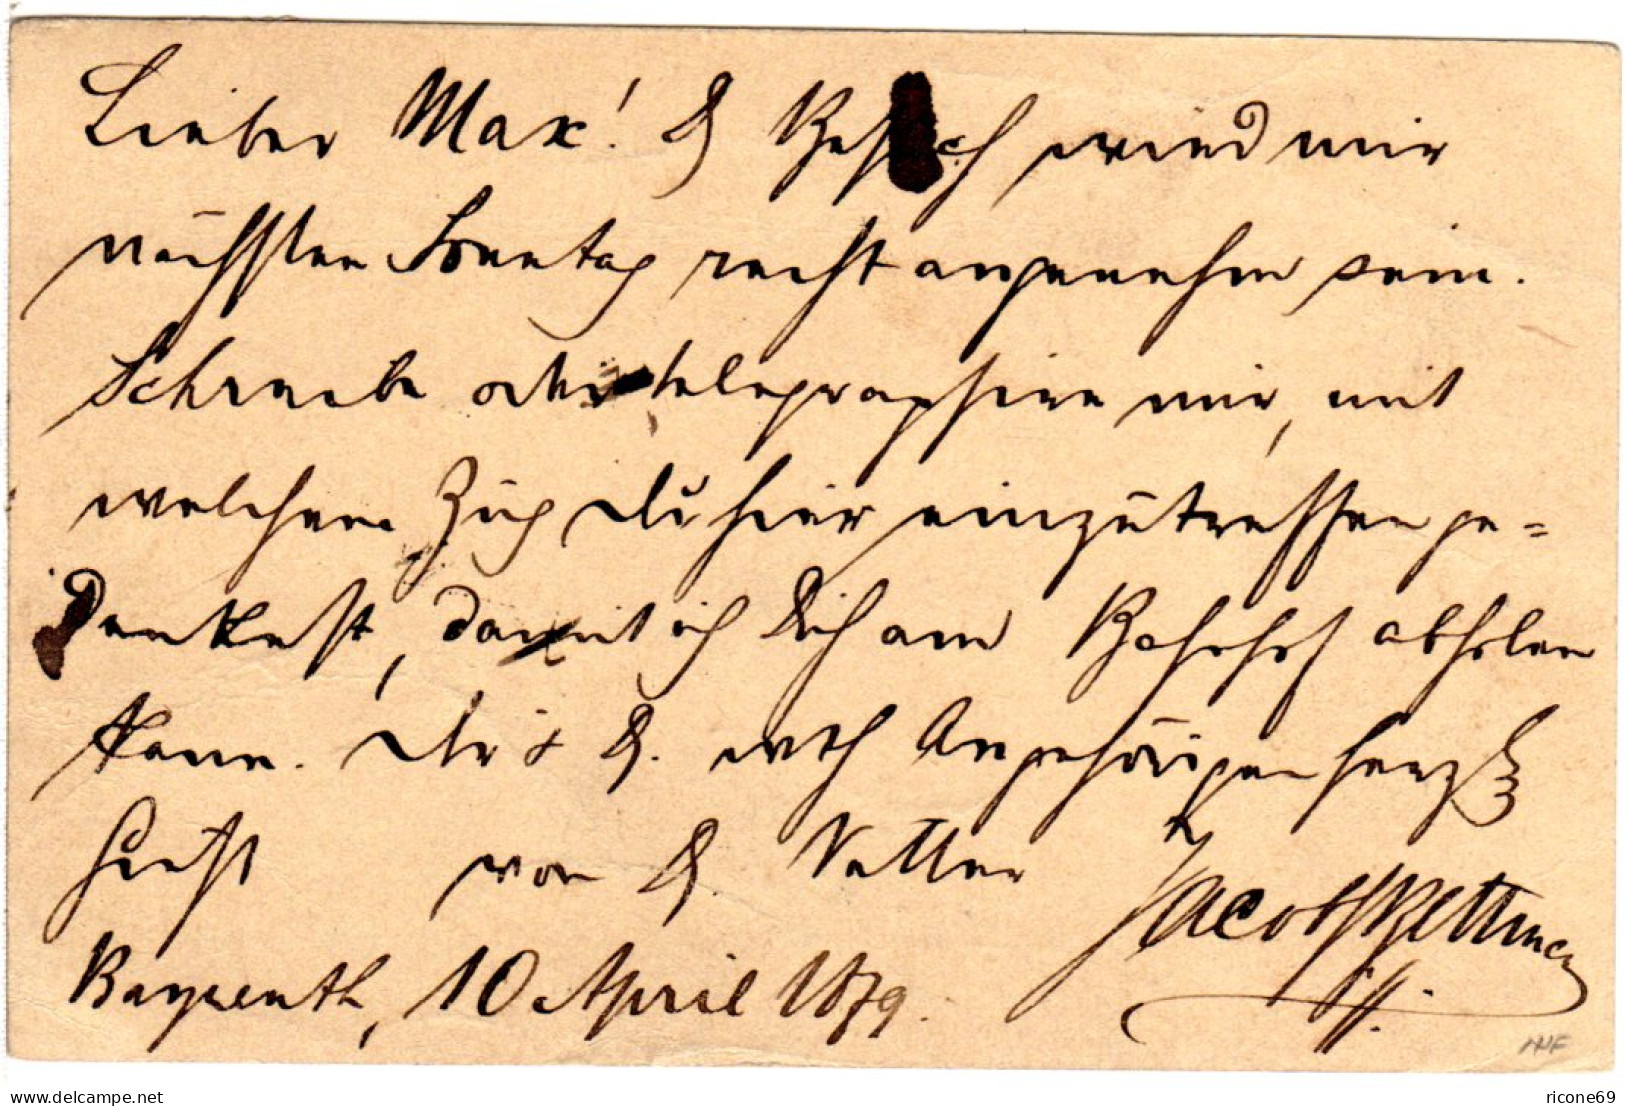 Lieber Max! D. Besuch wird mir
nächsten Sonntag recht angenehm sein.
Schreibe oder telegraphiere mir, mit
welchem Zug Du hier einzutreffen ge=
denkest, damit ich Dich am Bahnhof abholen
kann. Dir & D. wth Angehörigen herzl
Gruß von D. Vetter
Jacob
Bayreuth, 10 April 1879.
delcampe.net
ricone69